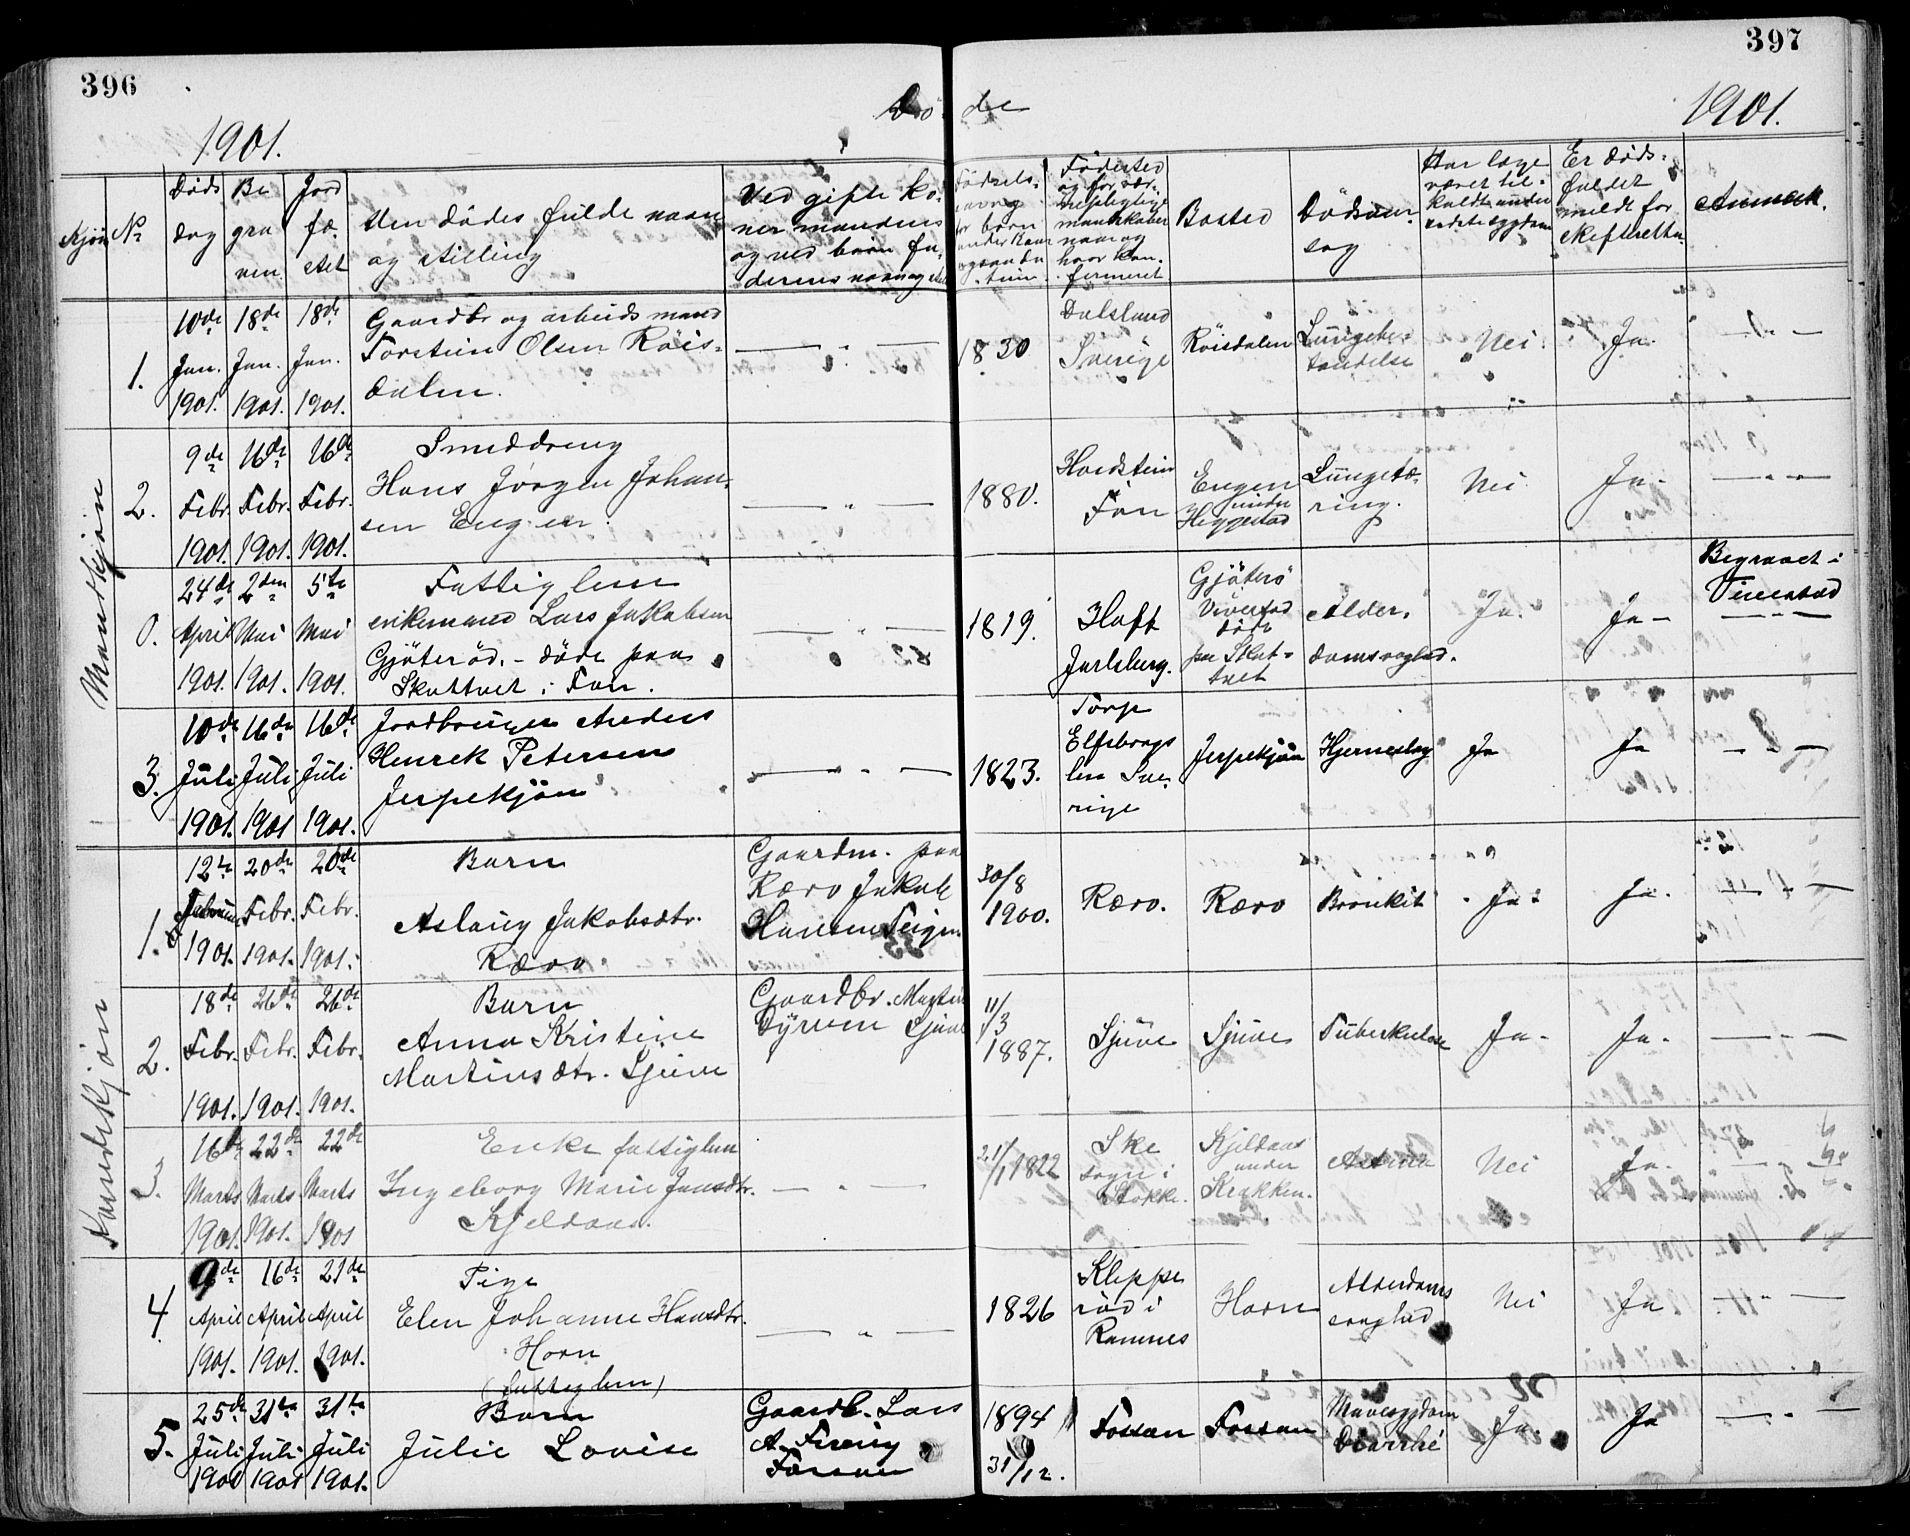 396
397
Dö de
1901.
1901.
Kjön
No
Döds
dag
Be
gra
ven.
Jord
fæ
stet
Den dödes fulde navn
og stilling
Ved gifte ko-
ner mandens
og ved börn fa-
derens navn og
Födested
og for vær-
nepligtige
mandskaber
naar og
hvor kon-
firmeret
Bosted
Dödsaar-
sag
Har læge
været til-
kaldt under
sidste sygdom
Er döds-
faldet
meldt for
skifteretten
Anmærk.
Mandkjön
1.
10de
Jan.
1901.
18de
Jan.
1901.
18de
Jan.
1901.
Gaardbr og arbeidsmand
Torstein Olsen Röis-
dalen.
— " —
1830
Dalsland
Sverige
Röisdalen
Lungebe-
tændelse
Nei
Ja.
— " —
2.
9de
Febr.
1901.
16de
Febr.
1901.
16de
Febr.
1901.
Smeddreng
Hans Jörgen Johan-
sen Engen.
— " —
1880.
Fon
Engen
under
Heggestad
Lungetæ-
ring.
Nei
Ja.
— " —
0.
24de
April
1901.
2den
Mai
1901.
5te
Mai
1901.
Fattiglem
enkemand Lars Jakobsen
Gjöteröd. - döde paa
Skottvet i Fon.
— " —
1819.
Haft
Jarlsberg.
Gjöterö
Vivestad
döde
paa Skot-
tvet
Alder-
domssvaghed.
Ja.
Ja —
Begravet i
Vivestad
— " —
3.
10de
Juli
1901.
16de
Juli
1901
16de
Juli
1901.
Jordbruger Anders
Henrek Petersen
Jerpekjön
— " —
1823.
Torp
Elfsborgs
len Sve-
rige
Jerpekjön
Hjerneslag
Ja
Ja
— " —
Kvindekjön
1.
12te
Februar
1901.
20de
Febr.
1901.
20de
Febr.
1901.
Barn
Aslaug Jakobsdtr.
Rævo
Gaardm. paa
Rævo Jakob
Hansen Teigen
30/8
1900.
Rævo.
Rævo
Bronkit
Ja
Ja.
— " —
2.
18de
Febr.
1901.
26de
Febr.
1901.
26de
Febr.
1901.
Barn
Anna Kristine
Martinsdtr. Sjuve
Gaardbr. Martin
Sjuve
11/3
1887.
Sjuve
Sjuve
Tuberkulose
Ja -
Ja.
— " —
3.
16de
Marts
1901.
22de
Marts
1901.
22de
Marts
1901
Enke fattiglem
Ingeborg Marie Jansdtr.
Kjeldaas.
— " —
21/1 1822
Ske
sogn i
Stokke.
Kjeldaas
under
Krakken.
Astma
Nei
Ja.
4.
9de
April
1901.
16de
April
1901.
21de
April
1901.
Pige
Elen Johanne Hansdtr.
Horn
(fattiglem)
— " —
1826
Kleppe
röd i
Ramnes
Horn
Alderdoms
svaghed
Nei
Ja
— " —
5.
25de
Juli
1901
31te
Juli
1901
31te
Juli
1901.
Barn
Julie Lovise
Gaardb. Lars
A.
Fossan
1894
31/12.
Fossan
Fossan
Mavesygdom
Diarrhé
Ja.
Ja
— " —